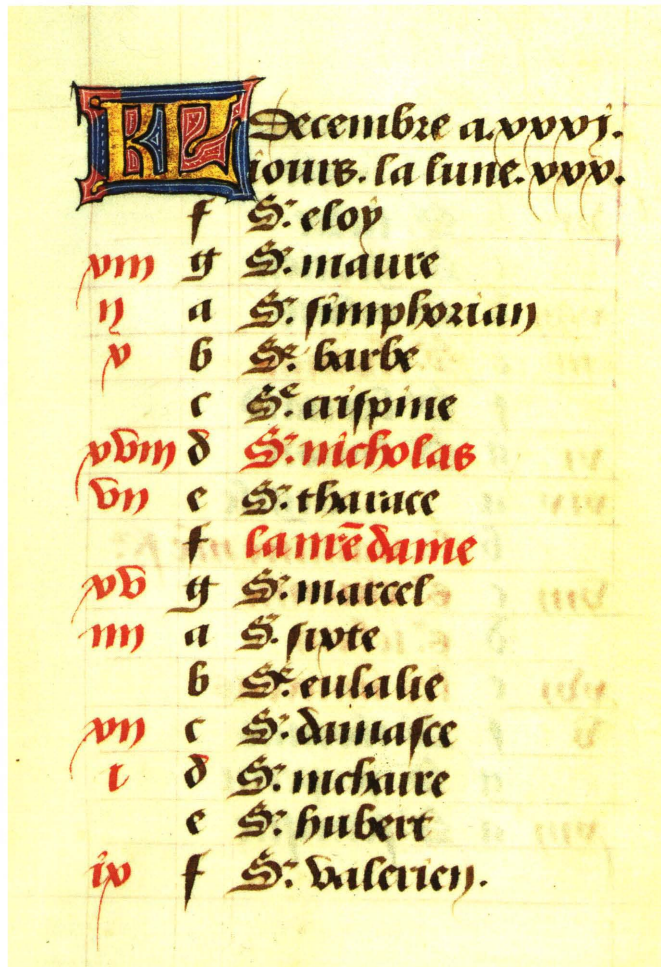 KL Decembre a. xxxj.
iours. la lune. xxx.
f St. eloy
xiii g St. maure
ii a St. simphorian
x b Se. barbe
c Se. crispine
xviii d St. nicholas
vii e St. tharace
f la nre dame
xv g St. marcel
iiii a S. sixte
b Se. eulalie
xii c St. damasce
i d St. nichaire
e St. hubert
ix f St. valerien.